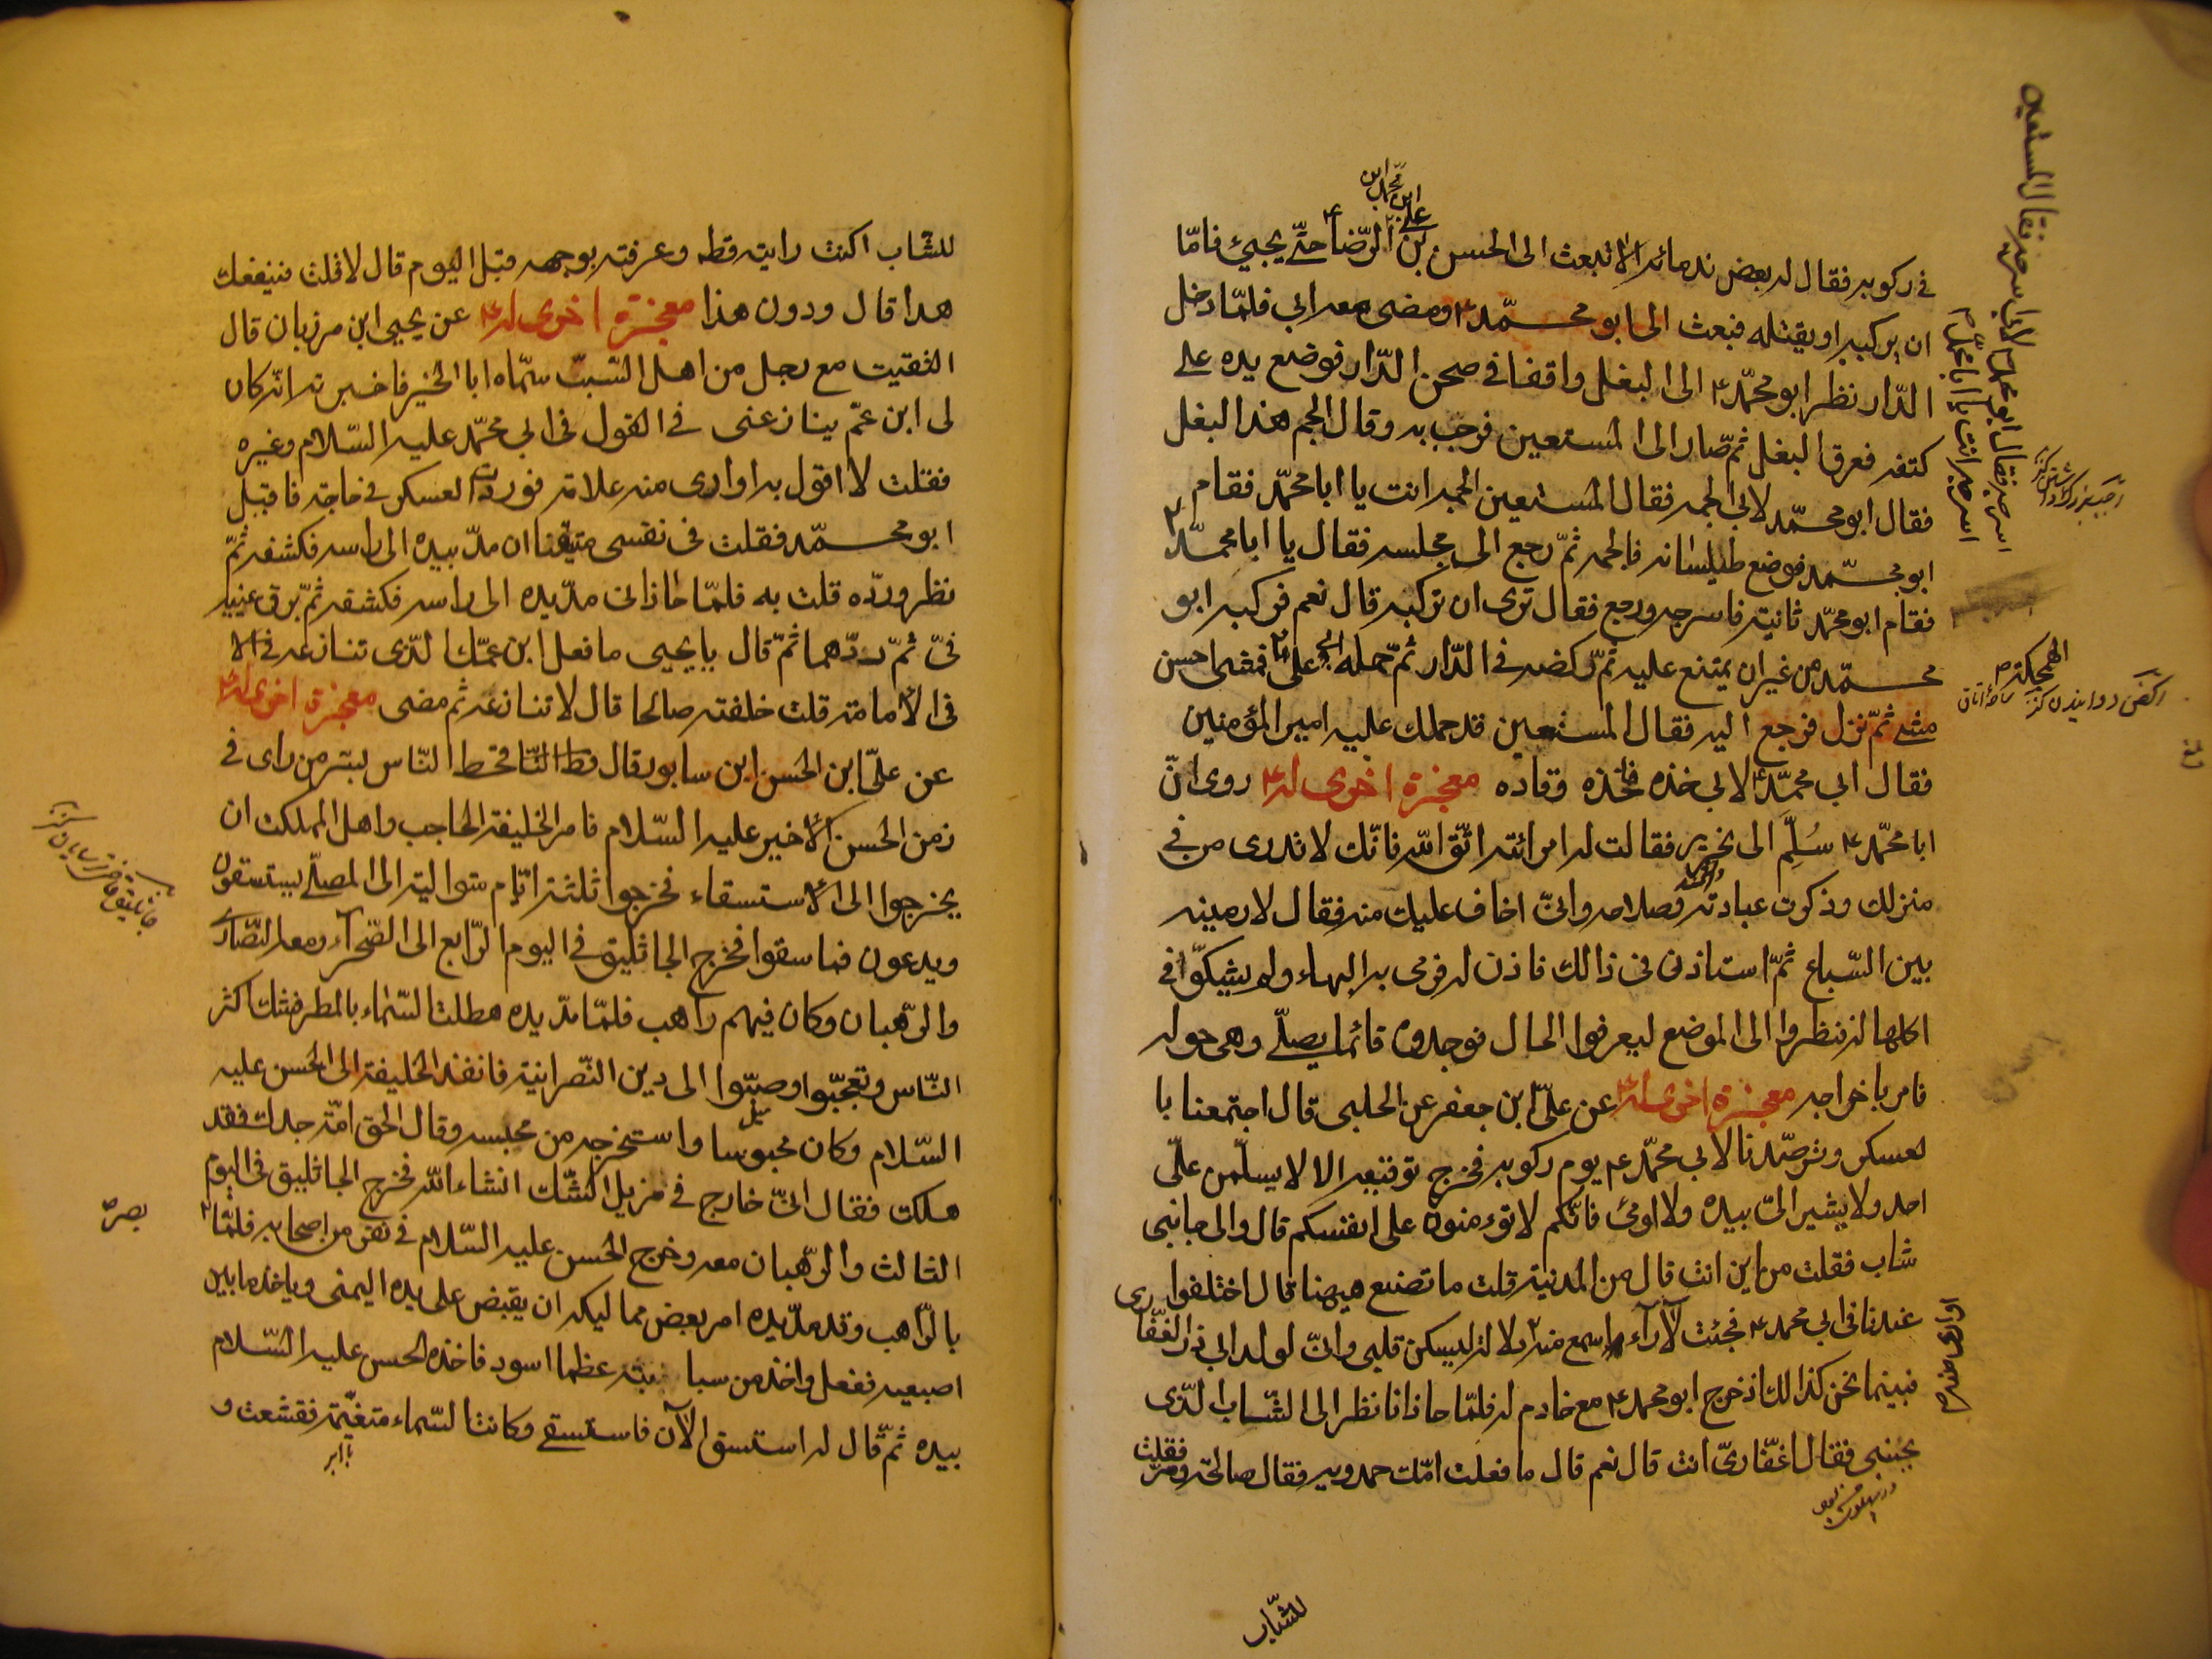 في ركوبه فقال له بعض ندمائه الا تبعث الى الحسن بن الرّضا ع حتّى يجيئ فامّا
علي
ابن محمد ابن
ان يركبه او يقتله فبعث الى ابو محمّد ع ومضى معه ابي فلمّا دخل
الدّار نظر ابو محمّد ع الى البغل واقفا في صحن الدّار فوضع يده على
كتفه فعرق البغل ثمّ صار الى المستعين فرحب به وقال الجم هذا البغل
فقال ابو محمّد لابي الجمه فقال المستعين الجمه انت يا ابا محمّد فقام
ابو محمّد فوضع طيلسانه فالجمه ثمّ رجع الى مجلسه فقال يا ابا محمّد
اسرجه فقال ابو محمد ع لابي اسرجه فقال المستعين
اسرجه انت يا ابا محمّد
فقام ابو محمّد ثانية فاسرجه ورجع فقال ترى ان تركبه قال نعم فركبه ابو
محمّد من غير ان يمتنع عليه ثمّ ركضه في الدّار ثمّ حمله على فمشى احسن
مشي ثمّ نزل فرجع اليه فقال المستعين قد حملك عليه امير المؤمنين
فقال ابي محمّد ع لابي خذه فاخذه وقاده معجزة اخرى له ع روى انّ
ابا محمّد ع سُلِّم الى نحرير فقالت له امرائته اتّق الله فانّك لا تدرى من في
منزلك وذكرت عبادته وصلاحه وانّى اخاف عليك منه فقال لارمينه
بين السّباع ثمّ استاذن في ذالك فاذن له فرمى به اليها ولم يشكّوا في
اكلها له فنظروا الى الموضع ليعرفوا الحال فوجدوه قائما يصلّى وهى حوله
فامر باخراجه معجزة اخرى له ع عن علىّ ابن جعفر عن الحلبى قال اجتمعنا با
لعسكر وترصّدنا لابي محمّد ع يوم ركوبه فخرج توقيعه الا لا يسلّمن علىّ
احد ولا يشير الىّ بيده ولا اومئ فانّكم لا تؤمنون على انفسكم قال والى جانبى
شاب فقلت من اين انت قال من المدنية قلت ما تصنع هيهنا قال اختلفوا
عندنا في ابي محمد ع فجئت لآراه واسمع منه دلالة ليسكن قلبى وانّى لولد ابي ذر الغفّارى
فبينما نحن كذالك اذ خرج ابو محمد ع مع خادم له فلمّا حاذانا نظر الى الشّاب الّذى
بجنبى فقال اغفّارىّ انت قال نعم قال ما فعلت امّك حمدويه فقال صالحة ومرّ فقلت
للشّاب
للشّاب اكنت رايته قط وعرفته بوجهه قبل اليوم قال لا قلت فينفعك
هذا قال ودون هذا معجزة اخرى له ع عن يحيى ابن مرزبان قال
التقيت مع رجل من اهل السّيب سمّاه ابا الخير فاخبرنى انّه كان
لى ابن عمّ ينازعنى في القول في ابي محمّد عليه السّلام وغيره
فقلت لا اقول به او ارى منه علامة فوردت العسكر في حاجة فاقبل
ابو محمّد فقلت في نفسى متيقنا ان مدّ بيده الى راسه فكشفه ثمّ
نظر وردّه قلت به فلمّا حاذانى مدّ يده الى راسه فكشفه ثمّ برق عينيه
فىّ ثمّ ردّهما ثمّ قال يا يحيى ما فعل ابن عمّك الّذى تنازعه في الا
في الامامة قلت خلفته صالحا قال لا تنازعه ثم مضى معجزة اخرى له ع
عن علىّ ابن الحسن ابن سابور قال قحط النّاس بسّر من راى في
زمن الحسن الاخير عليه السّلام فامر الخليفة الحاجب واهل المملكت ان
يخرجوا الى الاستسقاء فخرجوا ثلثة ايّام متوالية الى المصلّى يستسقون
ويدعون فما سقوا فخرج الجاثليق في اليوم الرّابع الى الصّحرآء ومعه النّصارى
والرّهبان وكان فيهم راهب فلمّا مدّ يده هطلت السّماء بالمطر فشك اكثر
النّاس وتعجّبوا وصبّوا الى دين النّصرانية فانفذ الخليفة الى الحسن عليه
السّلام وكان محبوسا واستخرجه من محبسه وقال الحق امّة جدك فقد
هلكت فقال انّى خارج في مزيل الشّك انشاء الله فخرج الجاثليق في اليوم
الثالث والرّهبان معه وخرج الحسن عليه السّلام في نفر من اصحابه فلمّا
بصر
بالرّاهب وقد مدّ يده امر بعض مماليكه ان يقبض على يده اليمنى وياخذ ما بين
اصبعيه ففعل واخذ من عظما اسود فاخذه الحسن عليه السّلام
بيده ثمّ قال له استسق الآن فاستسقى وكانت السّماء متغيّمة فقشعت و